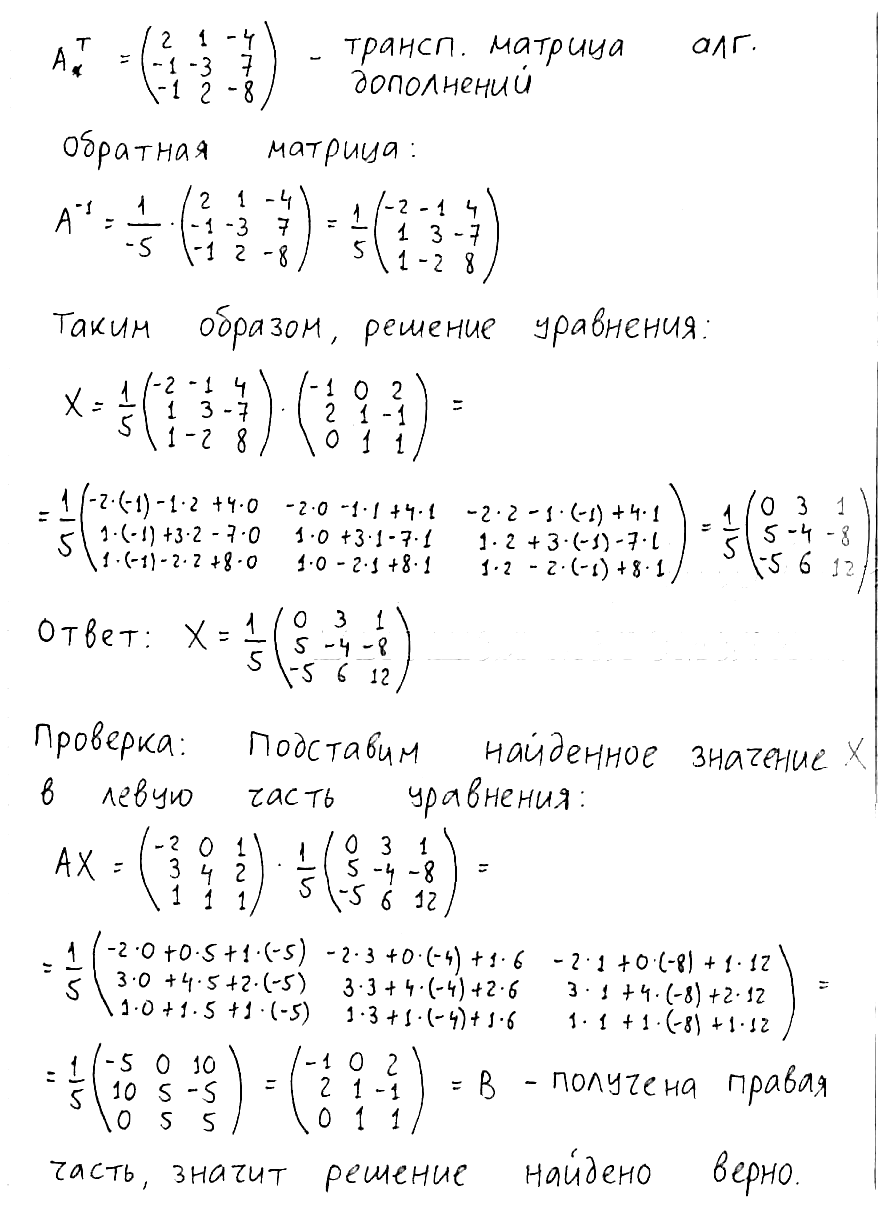 A*ᵀ = (2 1 -4; -1 -3 7; -1 2 -8) - трансп. матрица алг. дополнений
Обратная матрица:
A⁻¹ = 1/-5 · (2 1 -4; -1 -3 7; -1 2 -8) = 1/5 (-2 -1 4; 1 3 -7; 1 -2 8)
Таким образом, решение уравнения:
X = 1/5 (-2 -1 4; 1 3 -7; 1 -2 8) · (-1 0 2; 2 1 -1; 0 1 1) =
= 1/5 (-2·(-1)-1·2+4·0 -2·0-1·1+4·1 -2·2-1·(-1)+4·1; 1·(-1)+3·2-7·0 1·0+3·1-7·1 1·2+3·(-1)-7·1; 1·(-1)-2·2+8·0 1·0-2·1+8·1 1·2-2·(-1)+8·1) = 1/5 (0 3 1; 5 -4 -8; -5 6 12)
Ответ: X = 1/5 (0 3 1; 5 -4 -8; -5 6 12)
Проверка: Подставим найденное значение X
в левую часть уравнения:
AX = (-2 0 1; 3 4 2; 1 1 1) · 1/5 (0 3 1; 5 -4 -8; -5 6 12) =
= 1/5 (-2·0+0·5+1·(-5) -2·3+0·(-4)+1·6 -2·1+0·(-8)+1·12; 3·0+4·5+2·(-5) 3·3+4·(-4)+2·6 3·1+4·(-8)+2·12; 1·0+1·5+1·(-5) 1·3+1·(-4)+1·6 1·1+1·(-8)+1·12) =
= 1/5 (-5 0 10; 10 5 -5; 0 5 5) = (-1 0 2; 2 1 -1; 0 1 1) = B - получена правая
часть, значит решение найдено верно.